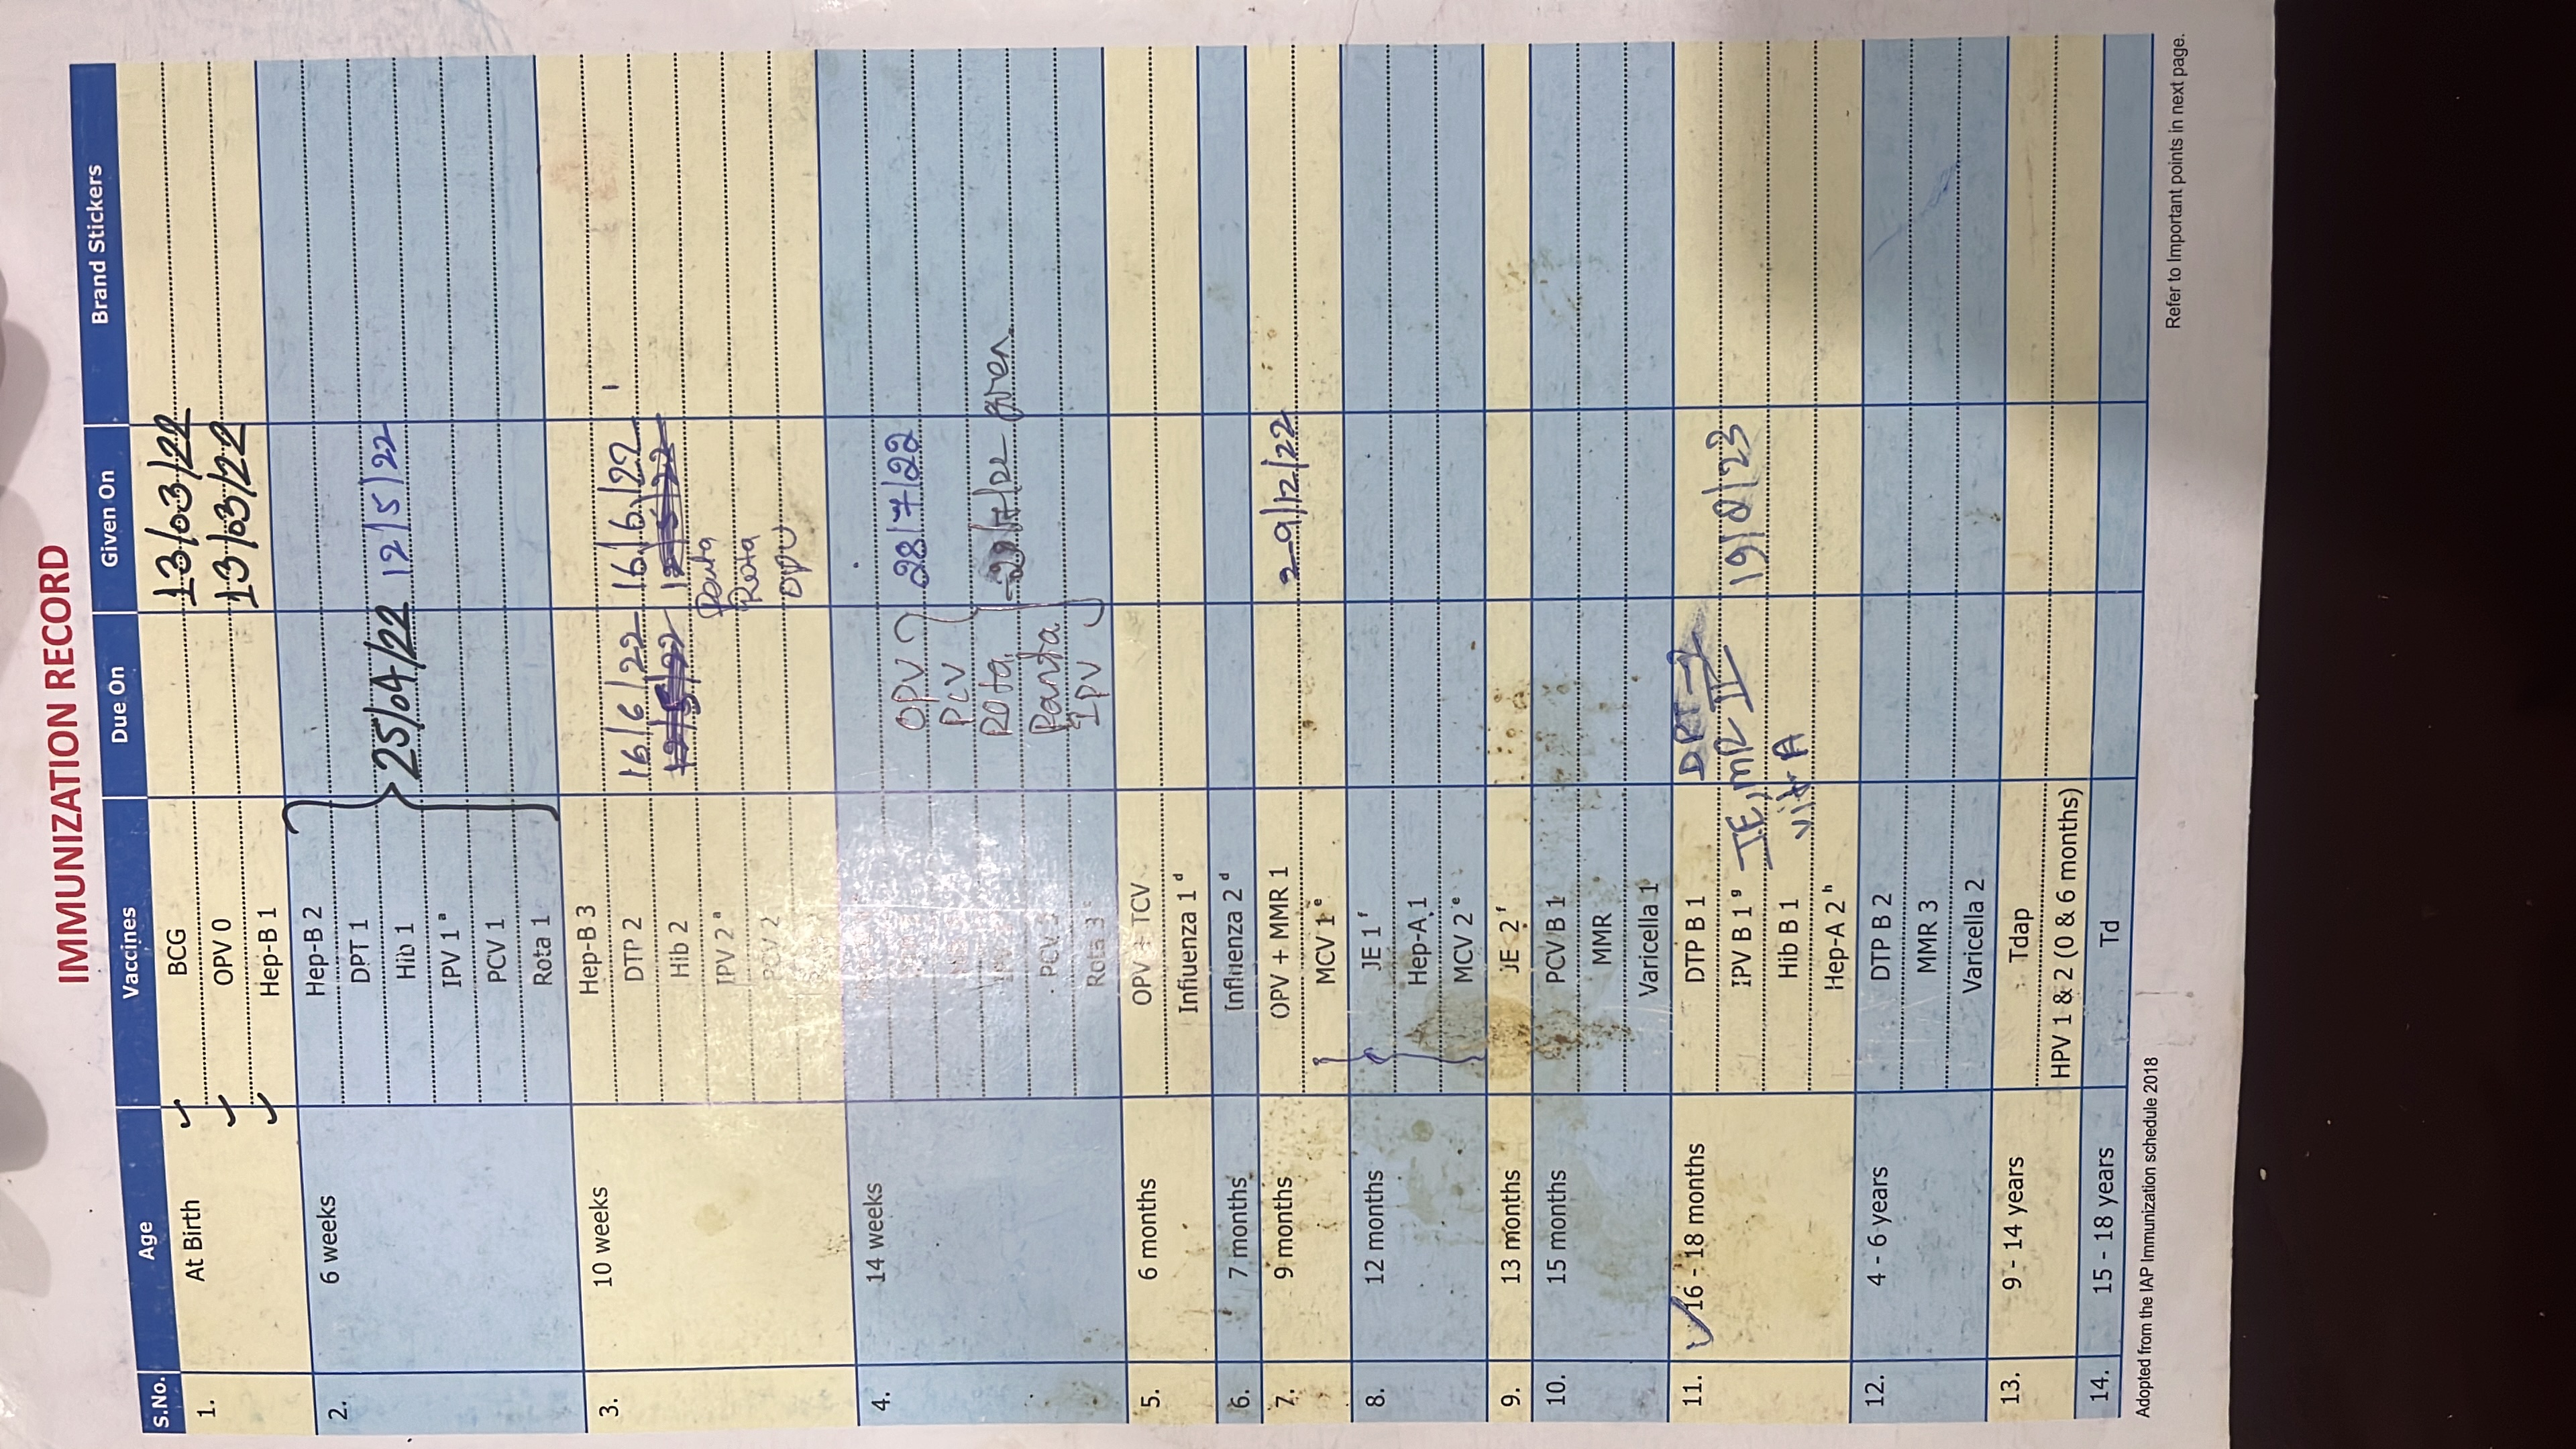 IMMUNIZATION RECORD
S.No. Age Vaccines Due On Given On Brand Stickers
1. At Birth BCG 13/03/22
OPV 0 13/03/22
Hep-B 1
2. 6 weeks Hep-B 2
DPT 1
Hib 1 25/04/22 12/5/22
IPV 1 a
PCV 1
Rota 1
3. 10 weeks Hep-B 3
DTP 2 16/6/22 16/6/22
Hib 2
Penta
IPV 2 a Rota
PCV 2 OPV
4. 14 weeks
OPV 28/7/22
PCV
Rota given
PCV 3 Panta
Rota 3 c IPV
5. 6 months OPV + TCV
Influenza 1 d
6. 7 months Influenza 2 d
7. 9 months OPV + MMR 1 29/12/22
MCV 1 e
8. 12 months JE 1 f
Hep-A 1
MCV 2 e
9. 13 months JE 2 f
10. 15 months PCV B 1
MMR
Varicella 1
11. 16 - 18 months DTP B 1 DPT
IPV B 1 g JE, MR II 19/8/23
Hib B 1 vit A
Hep-A 2 h
12. 4 - 6 years DTP B 2
MMR 3
Varicella 2
13. 9 - 14 years Tdap
HPV 1 & 2 (0 & 6 months)
14. 15 - 18 years Td
Adopted from the IAP Immunization schedule 2018
Refer to Important points in next page.